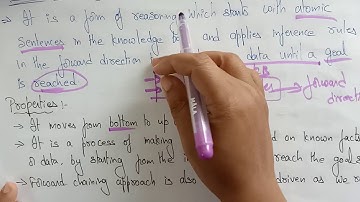 → It is a form of reasoning which starts with atomic
sentences in the knowledge and applies inference rules
in the forward direction data until a goal
is reached forward
Properties :-
→ It moves from bottom to up
→ It is a process of making on known facts
data, by starting from the reach the goal
→ Forward chaining approach is also driven as we